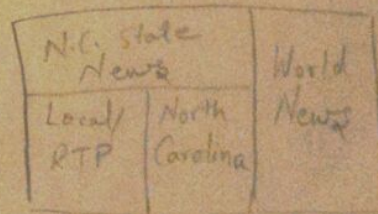 N.C. State
News
Local/
RTP
North
Carolina
World
News